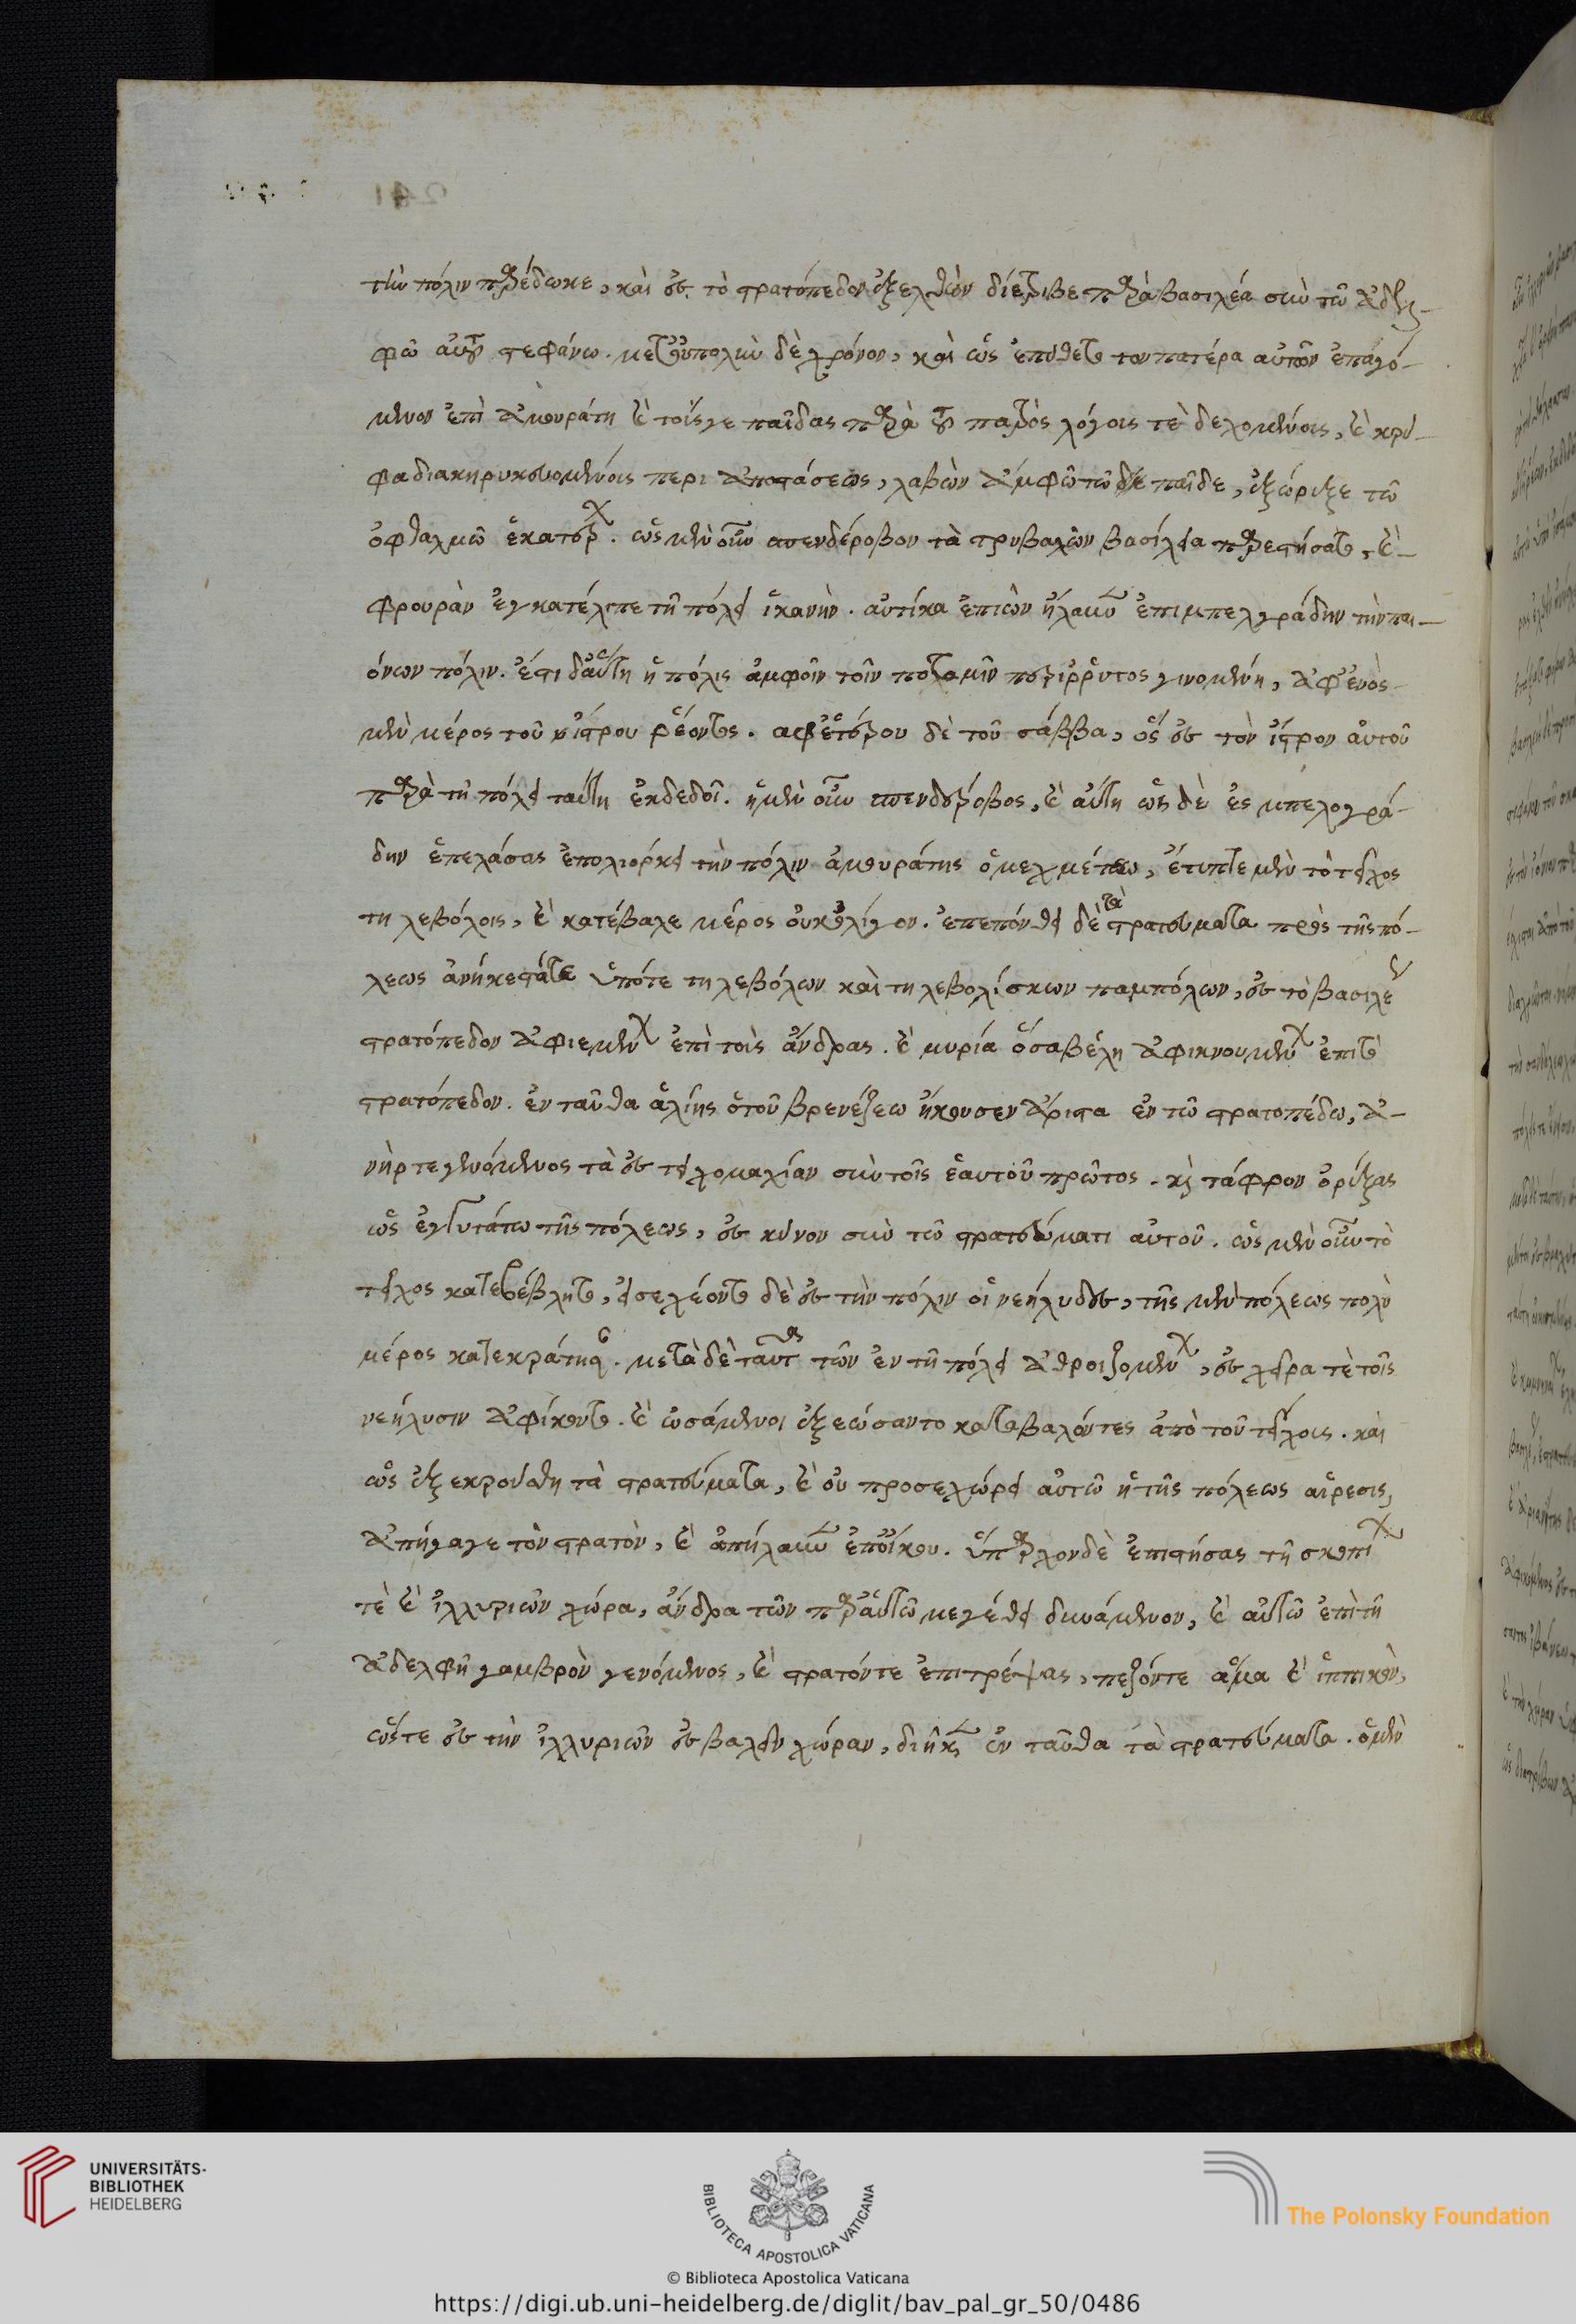 τὴν πόλιν παρέδωκε, καὶ ἐς τὸ στρατόπεδον ἐξελθὼν διέτριβε παρὰ βασιλέα σὺν τῶ ἀδελ-
φῶ αὐτοῦ στεφάνω. μετ' οὐ πολὺν δὲ χρόνον, καὶ ὡς ἐπύθετο τὸν πατέρα αὐτῶν ἐπαγό-
μενον ἐπὶ ἀμουράτη καὶ τούς γε παῖδας παρὰ τοῦ πατρὸς λόγους τὲ δεχομένους, καὶ κρύ-
φα διακηρυκευομένους περι ἀποστάσεως, λαβὼν ἄμφω τὼ δὲ παῖδε, ἐξώριξε τὼ
ὀφθαλμὼ ἑκατέρων. ὡς μὲν οὖν σπενδέροβον τὰ τριβαλῶν βασίλεια παρεστήσατο, καὶ
φρουρὰν ἐγκατέλιπε τῆ πόλει ἱκανὴν. αὐτίκα ἐπιὼν ἤλαυνεν ἐπι μπελγράδην τὴν παι-
όνων πόλιν. ἔστι δ' αὕτη ἡ πόλις ἀμφοῖν τοῖν ποταμοῖν περιρρυτος γινομένη, ἀφ' ἑνὸς
μὲν μέρος τοῦ ἴστρου ῥέοντος. αφ' ἑτέρου δὲ τοῦ σάββα, ὃς ἐς τὸν ἴστρον αὐτοῦ
παρὰ τῆ πόλει ταύτη ἐκδεδοῖ. ἡ μὲν οὖν σπενδερόβος, καὶ αὕτη ὡς δὲ ἐς μπελογρά-
δην ἐπελάσας ἐπολιόρκει τὴν πόλιν ἀμουράτης ὁ μεχμέτεω, ἔτυπτε μὲν τὸ τεῖχος
τηλεβόλοις, καὶ κατέβαλε μέρος οὐκ ὀλίγον. ἐπεπόνθει δὲ τὰ στρατεύματα πρὸς τῆς πό-
λεως ἀνήκεστα ὑπό τε τηλεβόλων καὶ τηλεβολίσκων παμπόλων, ἐς τὸ βασιλέως
στρατόπεδον ἀφιεμένων ἐπὶ τοὺς ἄνδρας. καὶ μυρία ὅσα βέλη ἀφικνουμένων ἐπι τὸ
στρατόπεδον. ἐνταῦθα ἀλίης ὁ τοῦ βρενέζεω ἤκουσεν ἄριστα ἐν τῶ στρατοπέδω, ἀ-
νήρ τε γενόμενος τὰ ἐς τειχομαχίαν σὺν τοῖς ἑαυτοῦ πρῶτος. καὶ τάφρον ὀρύξας
ὡς ἐγγυτάτω τῆς πόλεως, ἐς κῦνον σὺν τῶ στρατεύματι αὐτοῦ. ὡς μὲν οὖν τὸ
τεῖχος κατεβέβλητο, εἰσεχέοντο δὲ ἐς τὴν πόλιν οἱ νεήλυδες, τῆς μὲν πόλεως πολὺ
μέρος κατεκράτησαν. μετὰ δὲ ταῦτα τῶν ἐν τῆ πόλει ἀθροιζομένων, ἐς χεῖρα τὲ τοῖς
νεήλυσιν ἀφίκοντο. καὶ ὠσάμενοι ἐξεώσαντο καταβαλόντες ἀπὸ τοῦ τείχους. καὶ
ὡς ἐξεκρούσθη τὰ στρατεύματα, καὶ οὐ προσεχώρει αὐτῶ ἡ τῆς πόλεως αἵρεσις,
ἀπήγαγε τὸν στρατὸν, καὶ ἀπήλαυνεν ἐπ' οἴκου. ὕπαρχον δὲ ἐπιστήσας τῆ σκοπίων
τὲ καὶ ἰλλυριῶν χώρα, ἄνδρα τῶν παρ' αὑτῶ μεγέθει δυνάμενον, καὶ αὐτῶ ἐπὶ τῆ
ἀδελφῆ γαμβρὸν γενόμενος, καὶ στρατόν τε ἐπιτρέψας, πεζόν τε ἅμα καὶ ἱππικὸν,
ὥστε ἐς τὴν ἰλλυριῶν ἐσβαλεῖν χώραν, διῆκεν ἐνταῦθα τὰ στρατεύματα. ὁ μὲν
UNIVERSITÄTS-
BIBLIOTHEK
HEIDELBERG
BIBLIOTECA APOSTOLICA VATICANA
The Polonsky Foundation
© Biblioteca Apostolica Vaticana
https://digi.ub.uni-heidelberg.de/diglit/bav_pal_gr_50/0486